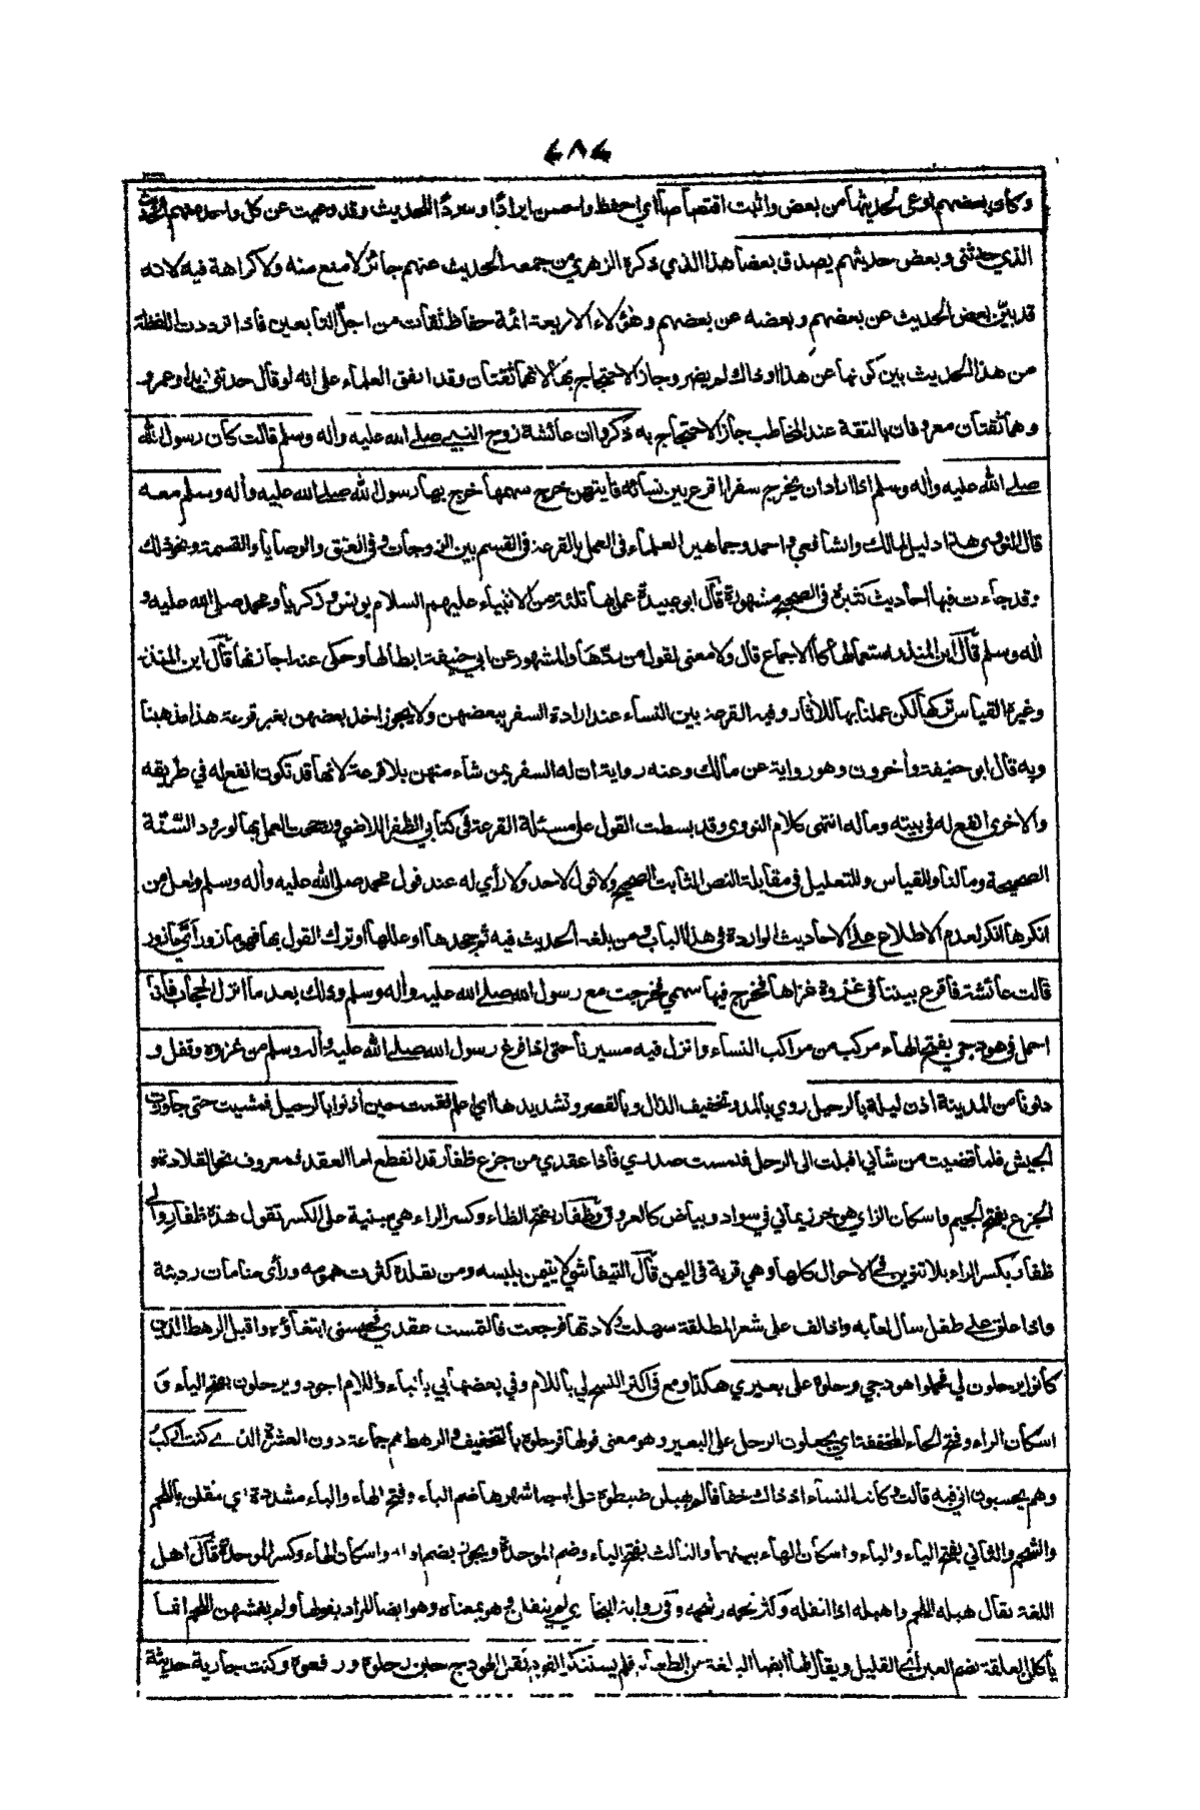 ٤٨٤
وكان بعضهم اوعى لحديثها من بعض واثبت اقتصاصا اي احفظ واحسن ايرادا وسردا للحديث وقد وعيت عن كل واحد منهم الحديث
الذي حدثني وبعض حديثهم يصدق بعضا هذا الذي ذكره الزهري من جمعه الحديث عنهم جائز لا منع منه ولا كراهة فيه لانه
قد بيّن بعض الحديث عن بعضهم وبعضه عن بعضهم وهؤلاء الاربعة ائمة حفاظ ثقات من اجلّ التابعين فاذا ترددت اللفظة
من هذا الحديث بين كونها عن هذا او ذاك لم يضر وجاز الاحتجاج بها لانهما ثقتان وقد اتفق العلماء على انه لو قال حدثني زيد او عمرو
وهما ثقتان معروفان بالثقة عند المخاطب جاز الاحتجاج به ذكروا ان عائشة زوج النبي صلى الله عليه واله وسلم قالت كان رسول الله
صلى الله عليه واله وسلم اذا اراد ان يخرج سفرا اقرع بين نسائه فايتهن خرج سهمها خرج بها رسول الله صلى الله عليه واله وسلم معه
قال النووي هذا دليل لمالك والشافعي واحمد وجماهير العلماء في العمل بالقرعة في القسم بين الزوجات وفي العتق والوصايا والقسمة ونحو ذلك
وقد جاءت فيها احاديث كثيرة في الصحيح مشهورة قال ابو عبيدة عمل بها ثلثة من الانبياء عليهم السلام يونس وزكريا ومحمد صلى الله عليه و
اله وسلم قال ابن المنذر استعمالها كالاجماع قال ولا معنى لقول من ردّها والمشهور عن ابي حنيفة ابطالها وحكى عنه اجازتها قال ابن المنذر
وغيره القياس تركها لكن عملنا بها للآثار وفيه القرعة بين النساء عند ارادة السفر ببعضهن ولا يجوز اخذ بعضهن بغير قرعة هذا مذهبنا
وبه قال ابو حنيفة وآخرون وهو رواية عن مالك وعنه رواية ان له السفر بمن شاء منهن بلا قرعة لانها قد تكون انفع له في طريقه
والاخرى انفع له في بيته وماله انتهى كلام النووي وقد بسطت القول على مسئلة القرعة في كتابي الظفر اللاضي ورجحت العمل بها لورود السنّة
الصحيحة وما لنا وللقياس وللتعليل في مقابلة النص الثابت الصحيح ولا قول لاحد ولا رأي له عند قول محمد صلى الله عليه واله وسلم ولعل من
انكرها انكر لعدم الاطلاع على الاحاديث الواردة في هذا الباب ومن بلغه الحديث فيه ثم جحدها او عللها او ترك القول بها فهو مازور اتّى مازور
قالت عائشة فاقرع بيننا في غزوة غزاها فخرج فيها سهمي فخرجت مع رسول الله صلى الله عليه واله وسلم وذلك بعد ما انزل الحجاب فانا
احمل في هودجي بفتح الهاء مركب من مراكب النساء وانزل فيه مسيرنا حتى اذا فرغ رسول الله صلى الله عليه واله وسلم من غزوه وقفل و
دنونا من المدينة اذن ليلة بالرحيل روي بالمد وتخفيف الذال وبالقصر وتشديدها اي اعلم فقمت حين اذنوا بالرحيل فمشيت حتى جاوزت
الجيش فلما قضيت من شاني اقبلت الى الرحل فلمست صدري فاذا عقدي من جزع ظفار قد انقطع اما العقد فمعروف نحو القلادة و
الجزع بفتح الجيم واسكان الزاي هو خرز يماني في سواد وبياض كالعروق وظفار بفتح الظاء وكسر الراء هي مبنية على الكسر تقول هذه ظفار والى
ظفار بكسر الراء بلا تنوين في الاحوال كلها وهي قرية في اليمن قال التيفاشي لا يتيمن بلبسه ومن تقلده كثرت همومه ورأى منامات رديئة
واذا علق على طفل سال لعابه واذا لف على شعر المطلقة سهلت ولادتها فرجعت فالتمست عقدي فحبسني ابتغاؤه واقبل الرهط الذين
كانوا يرحلون لي فحملوا هودجي ورحلوه على بعيري هكذا وقع في اكثر النسخ لي باللام وفي بعضها بي بالباء واللام اجود ويرحلون بفتح الياء و
اسكان الراء وفتح الحاء المخففة اي يجعلون الرحل على البعير وهو معنى قولها فرحلوه بالتخفيف والرهط هم جماعة دون العشرة الذي كنت اركب
وهم يحسبون اني فيه قالت وكانت النساء اذ ذاك خفافا لم يهبلن ضبطوه على اوجه اشهرها ضم الياء وفتح الهاء والباء مشددة اي يثقلن باللحم
والشحم والثاني بفتح الياء والباء واسكان الهاء بينهما والثالث بفتح الياء وضم الموحدة ويجوز بضم اوله واسكان الهاء وكسر الموحدة قال اهل
اللغة يقال هبله اللحم واهبله اذا اثقله وكثر لحمه وشحمه وفي رواية البخاري لم يثقلن وهو بمعناه وهو ايضا المراد بقولها ولم يغشهن اللحم انما
ياكلن العلقة بضم العين اي القليل ويقال لها ايضا البلغة من الطعام فلم يستنكر القوم ثقل الهودج حين رحلوه ورفعوه وكنت جارية حديثة